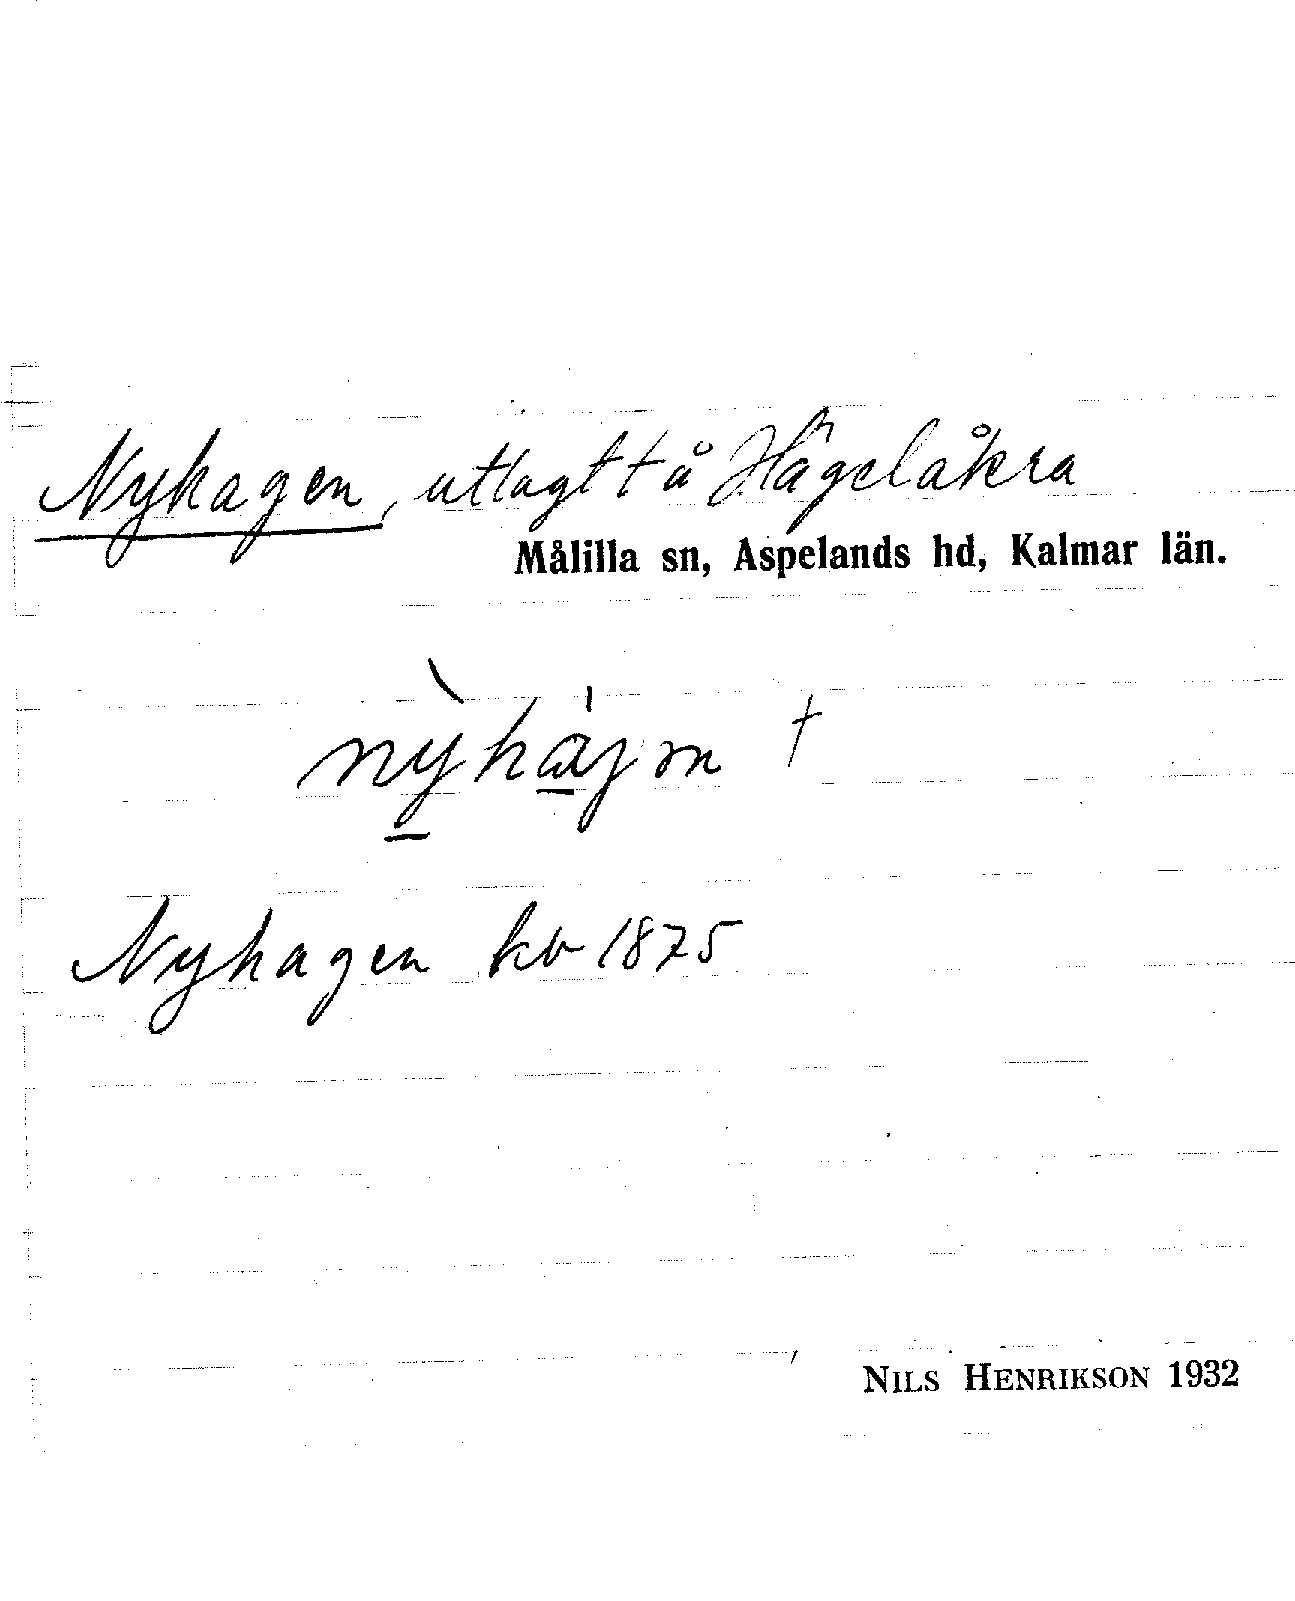 Nyhagen, utlagt t å Hågelåkra
Målilla sn, Aspelands hd, Kalmar län.
Nyhagen kb 1875
NILS HENRIKSON 1932